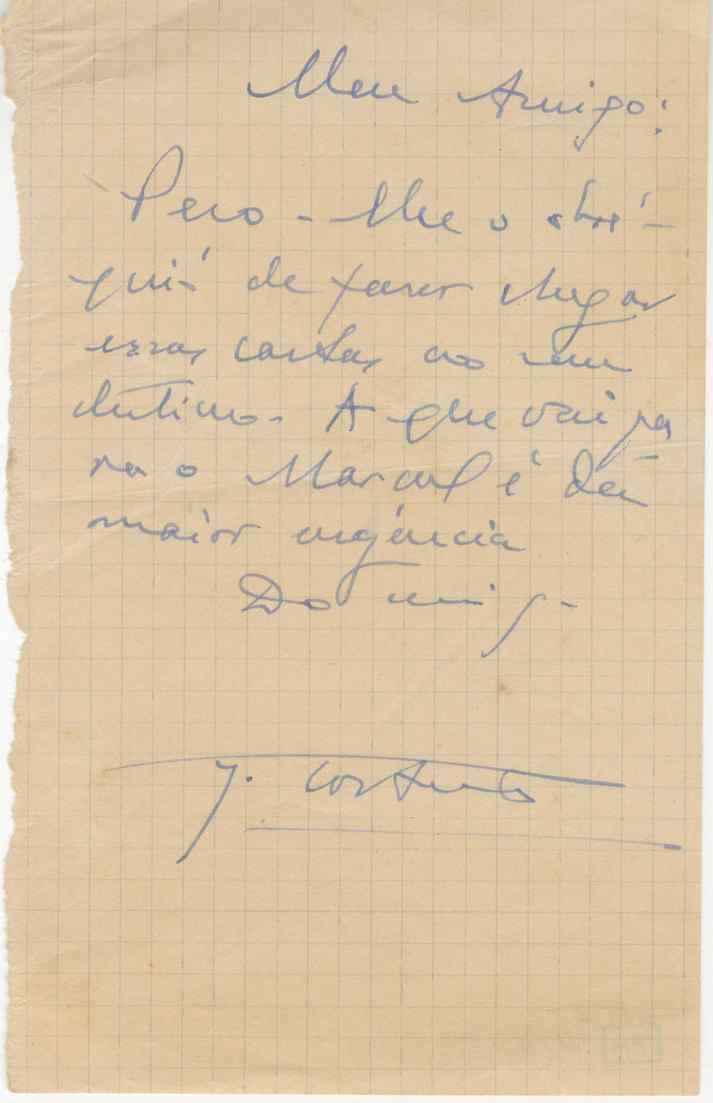 Meu Amigo:
Peço-lhe o obsé-
quio de fazer chegar
essas cartas ao seu
destino. A que vai pa
ra o Marcel é da
maior urgência
Do amigo
J. Cortesão